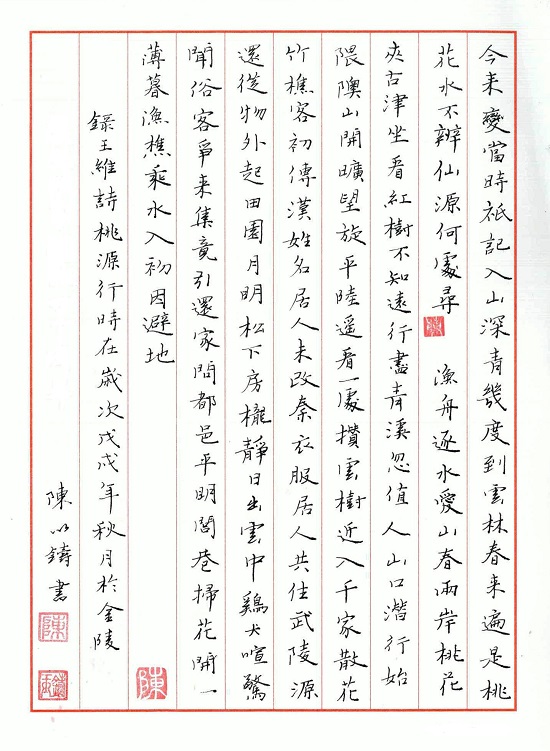 今来變當時祗記入山深青幾度到雲林春来遍是桃
花水不辨仙源何處尋 陳 漁舟逐水愛山春兩岸桃花
夾古津坐看紅樹不知遠行盡青溪忽值人山口潛行始
隈隩山開曠望旋平陸遥看一處攢雲樹近入千家散花
竹樵客初傳漢姓名居人未改秦衣服居人共住武陵源
還從物外起田園月明松下房櫳靜日出雲中鷄犬喧驚
聞俗客爭来集竟引還家問都邑平明閭巷掃花開一
薄暮漁樵乘水入初因避地
陳
録王維詩桃源行時在歲次戊戌年秋月於金陵
陳以鑄書
陳